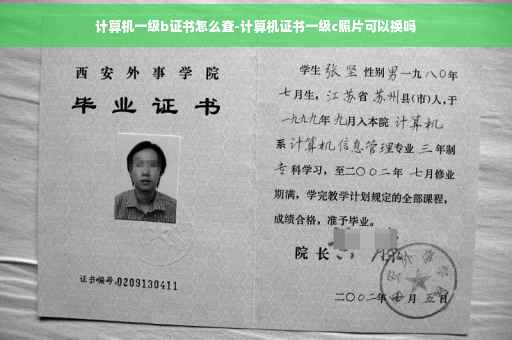 计算机一级b证书怎么查-计算机证书一级c照片可以换吗
西安外事学院
毕业证书
证书编号:0209130411
学生 张坚 性别 男 一九八〇年
七月生，江苏省 苏州 县(市)人，于
一九九九年 九月入本院 计算机
系 计算机信息管理 专业 三 年制
专 科学习，至二〇〇二年 七月修业
期满，学完教学计划规定的全部课程，
成绩合格，准予毕业。
院长
二〇〇二年 月 五日